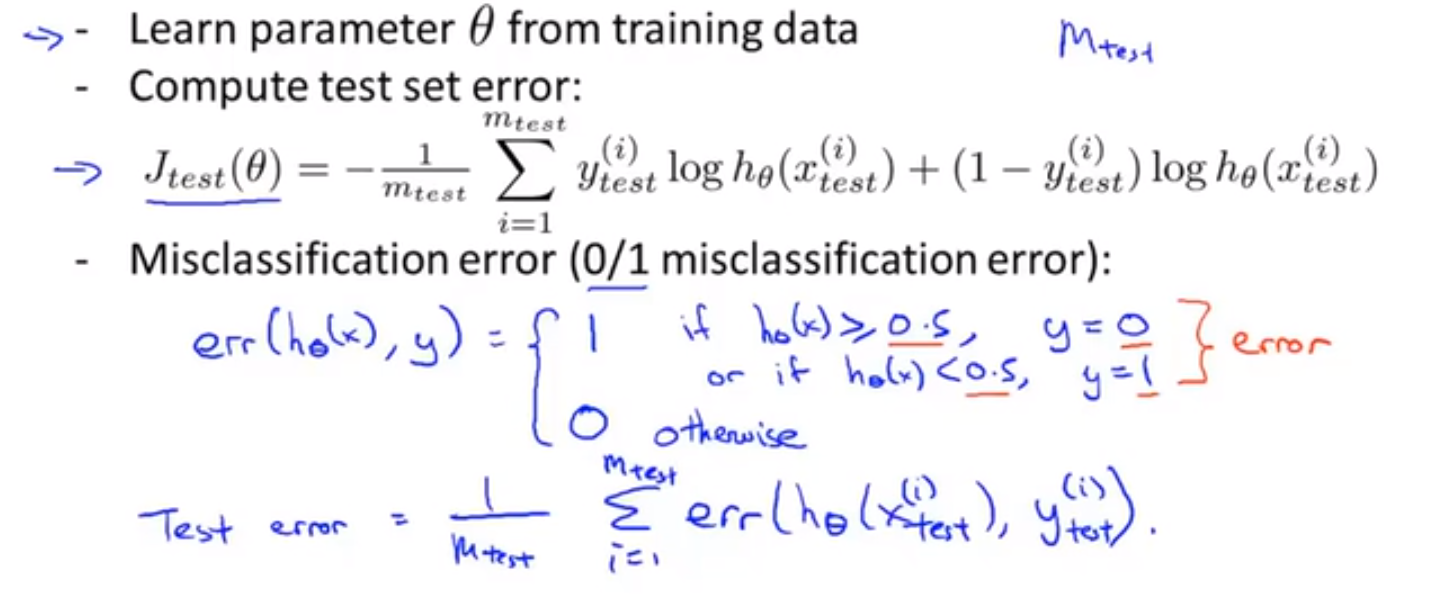 → - Learn parameter θ from training data m_test
- Compute test set error:
→ J_test(θ) = −1/m_test ∑_{i=1}^{m_test} y_test^(i) log h_θ(x_test^(i)) + (1 − y_test^(i)) log h_θ(x_test^(i))
- Misclassification error (0/1 misclassification error):
err(h_θ(x), y) = { 1 if h_θ(x) ≥ 0.5, y = 0 } error
or if h_θ(x) < 0.5, y = 1
0 otherwise
Test error = 1/m_test ∑_{i=1}^{m_test} err(h_θ(x_test^(i)), y_test^(i)).